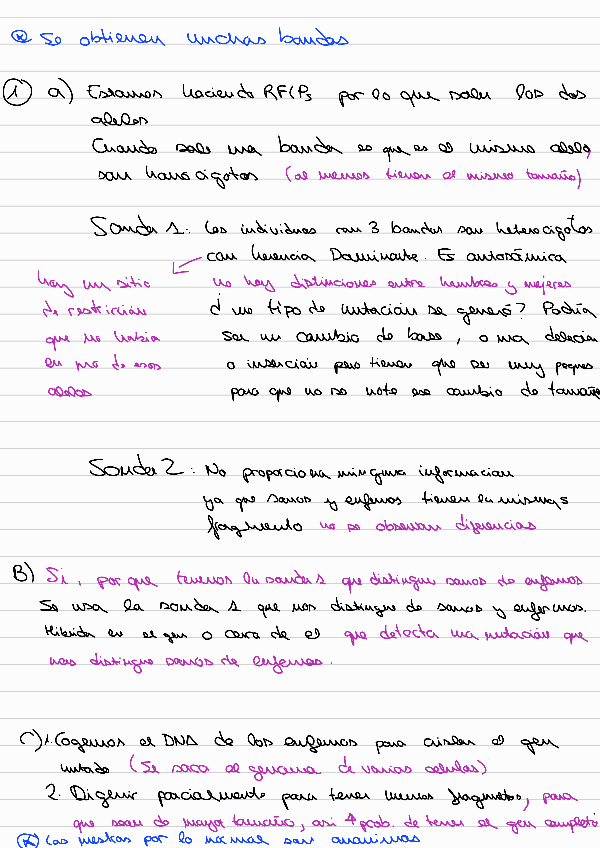 ⊛ Se obtienen muchas bandas
① a) Estamos haciendo RFLPs por lo que salen los dos
alelos
Cuando sale una banda es que es el mismo alelo,
son homocigotos (al menos tienen el mismo tamaño)
Sonda 1: Los individuos con 3 bandas son heterocigotos
con herencia Dominante. Es autosómica
no hay distinciones entre hombres y mujeres
hay un sitio
de restricción
que no había
en uno de esos
alelos
¿Que tipo de mutación se generó? Podría
ser un cambio de base, o una delección
o inserción pero tienen que ser muy peques
para que no se note ese cambio de tamaño
Sonda 2: No proporciona ninguna informacion
ya que sanos y enfermos tienen los mismos
fragmento no se observan diferencias
B) Si, por que tenemos la sonda 1 que distingue sanos de enfermos
Se usa la sonda 1 que nos distingue de sanos y enfermos.
Hibrida en el gen o cerca de el que detecta una mutación que
nos distingue sanos de enfermos.
C) 1. Cogemos el DNA de los enfermos para aislar el gen
mutado (Se saca el genoma de varias celulas)
2. Digerir parcialmente para tener menos fragmentos, para
que sean de mayor tamaño, asi ↑ prob. de tener el gen completo
⊛ Las muestras por lo normal son anonimas